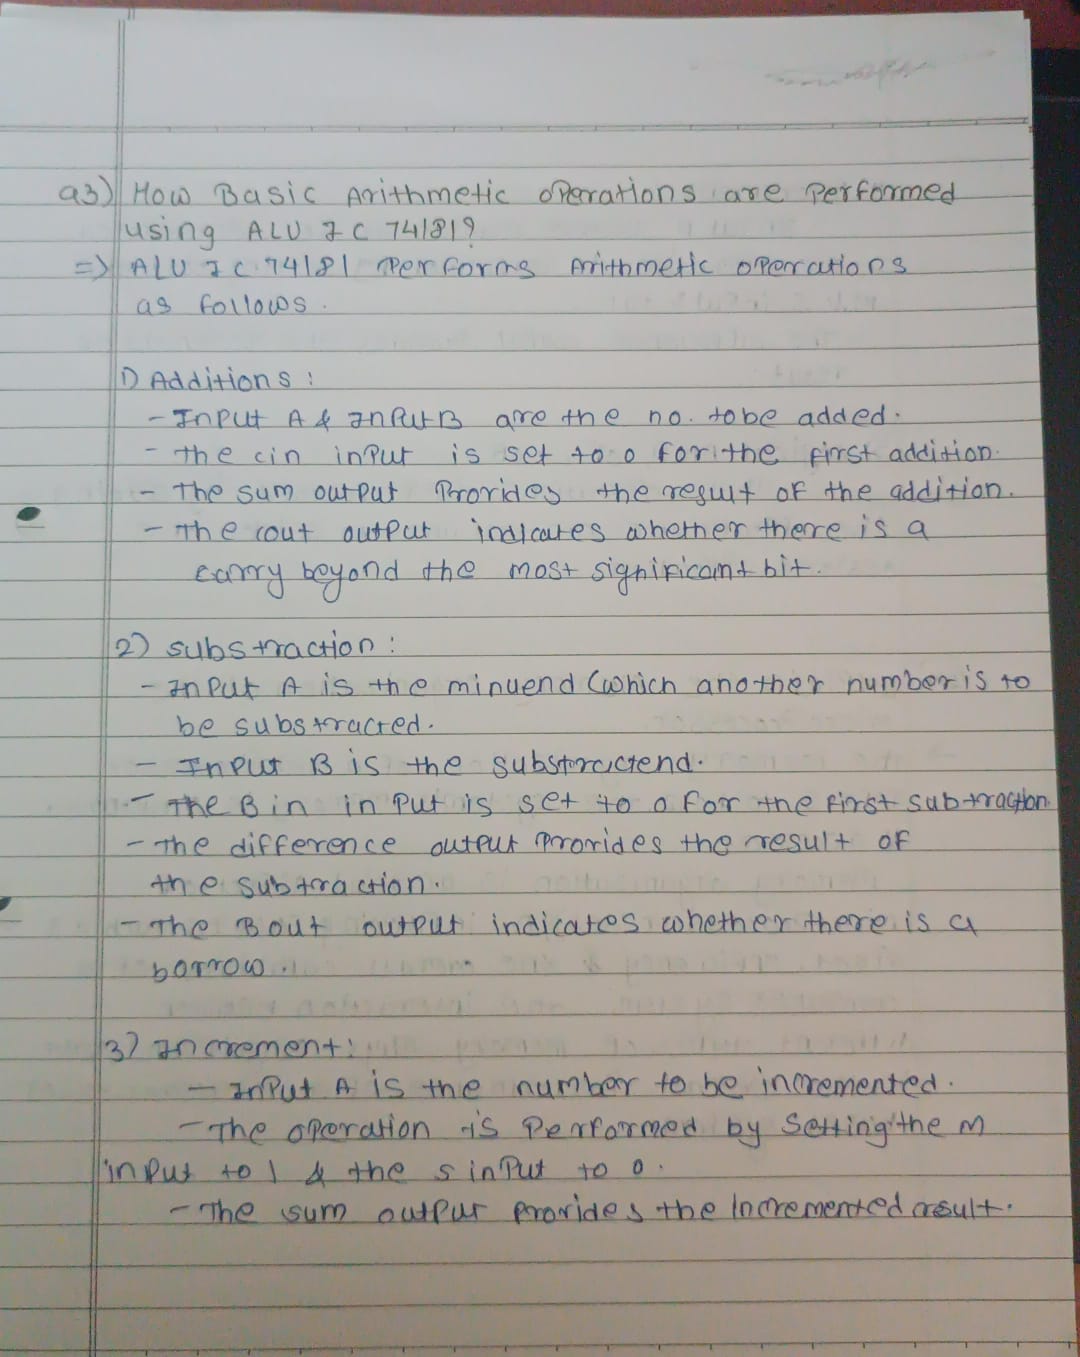 Q3) How Basic Arithmetic operations are performed
using ALU IC 74181?
=> ALU IC 74181 Performs Arithmetic operations
as follows.
1) Additions :
- Input A & Input B are the no. to be added.
- the cin input is set to 0 for the first addition.
- The sum output Provides the result of the addition.
- The cout output indicates whether there is a
carry beyond the most significant bit.
2) substraction :
- Input A is the minuend (which another number is to
be substracted.
- Input B is the substractend.
- The Bin input is set to 0 for the first subtraction
- The difference output Provides the result of
the subtraction.
- The Bout output indicates whether there is a
borrow.
3) Increment:
- Input A is the number to be incremented.
- The operation is Performed by Setting the M
input to 1 & the s input to 0.
- The sum output provides the Incremented result.